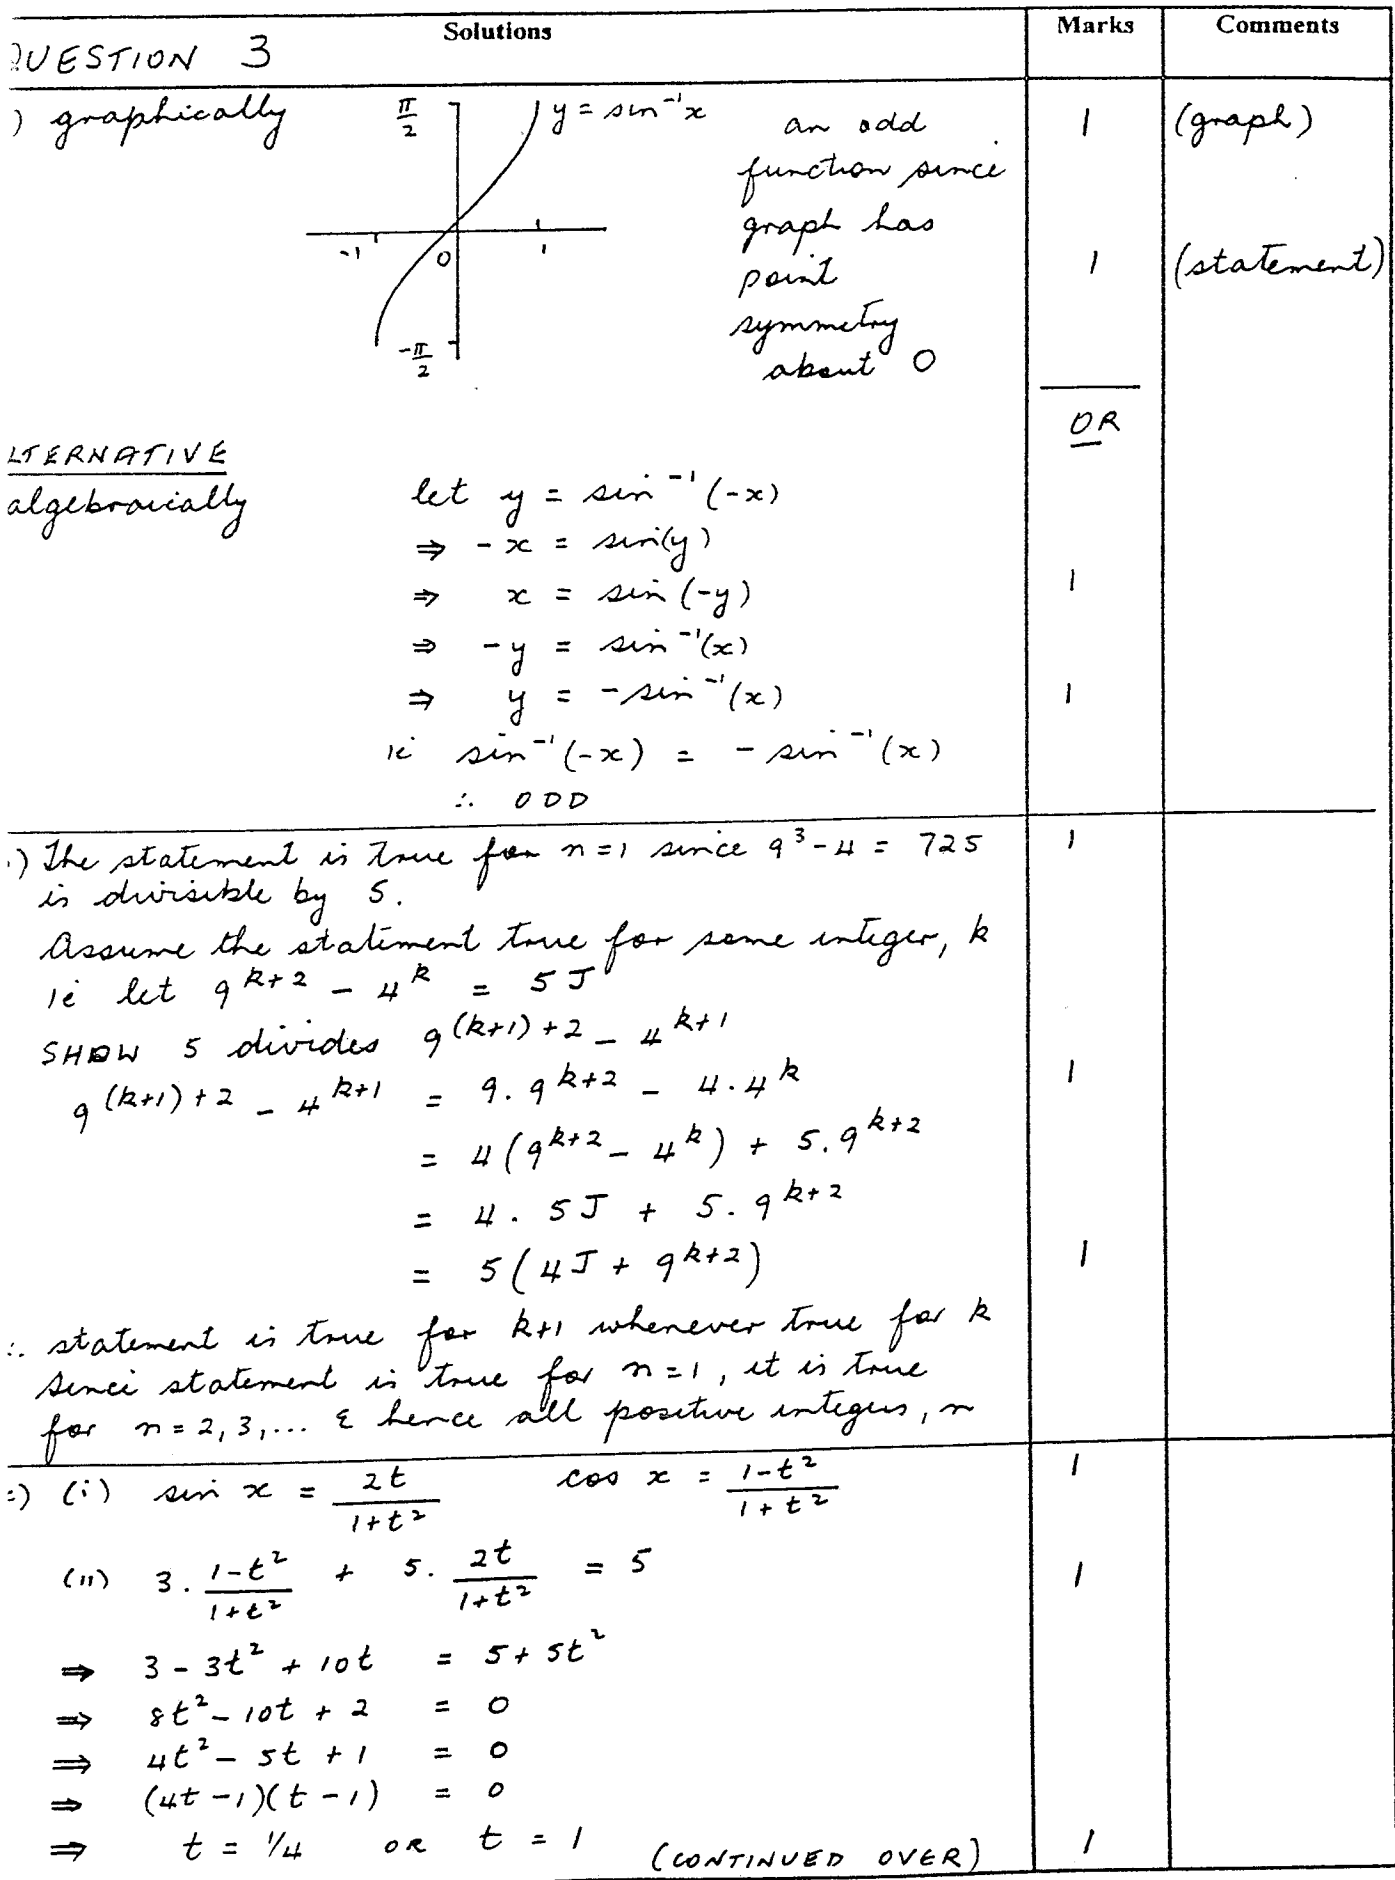 Solutions Marks Comments
QUESTION 3
) graphically π/2 y = sin⁻¹x an odd 1 (graph)
function since
graph has
-1 0 1 point 1 (statement)
symmetry
-π/2 about O
OR
LTERNATIVE
algebraically let y = sin⁻¹(-x)
⇒ -x = sin(y)
⇒ x = sin(-y) 1
⇒ -y = sin⁻¹(x)
⇒ y = -sin⁻¹(x) 1
ie sin⁻¹(-x) = -sin⁻¹(x)
∴ ODD
) The statement is true for n=1 since 9³-4 = 725 1
is divisible by 5.
Assume the statement true for some integer, k
ie let 9ᵏ⁺² - 4ᵏ = 5J
SHOW 5 divides 9⁽ᵏ⁺¹⁾⁺² - 4ᵏ⁺¹
9⁽ᵏ⁺¹⁾⁺² - 4ᵏ⁺¹ = 9.9ᵏ⁺² - 4.4ᵏ 1
= 4(9ᵏ⁺² - 4ᵏ) + 5.9ᵏ⁺²
= 4. 5J + 5. 9ᵏ⁺²
= 5(4J + 9ᵏ⁺²) 1
∴ statement is true for k+1 whenever true for k
Since statement is true for n=1, it is true
for n = 2, 3, ... & hence all positive integers, n
) (i) sin x = 2t/(1+t²) cos x = (1-t²)/(1+t²) 1
(ii) 3. (1-t²)/(1+t²) + 5. 2t/(1+t²) = 5 1
⇒ 3 - 3t² + 10t = 5 + 5t²
⇒ 8t² - 10t + 2 = 0
⇒ 4t² - 5t + 1 = 0
⇒ (4t -1)(t -1) = 0
⇒ t = 1/4 OR t = 1 (CONTINUED OVER) 1